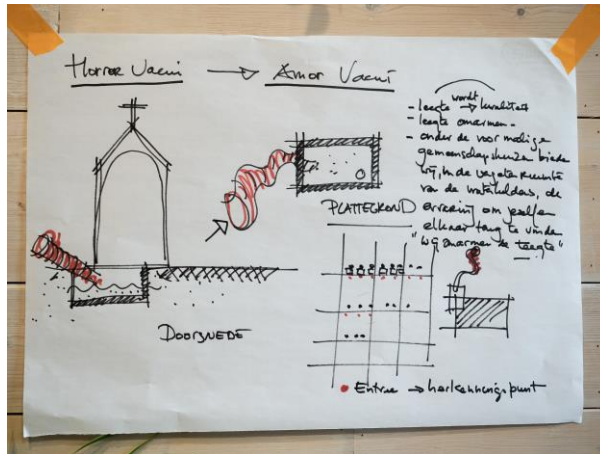 Horror Vacui → Amor Vacui
wordt
- leegte → kwaliteit
- leegte omarmen -
- onder de voormalige
gemeenschapshuizen bieden
wij, in de vergaten ruimte
van de waterkelders, de
ervaring om jezelf en
elkaar terug te vinden
"wij omarmen de leegte"
PLATTEGROND
DOORSNEDE
• Entree → herkenningspunt